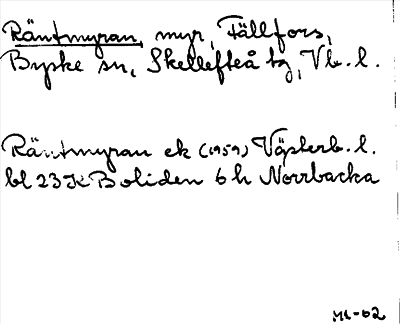 Räntmyran, myr, Fällfors,
Byske sn, Skellefteå tg, Vb. l.
Räntmyran ek (1959) Västerb. l.
bl 23 K Boliden 6 h Norrbacka
ML-62